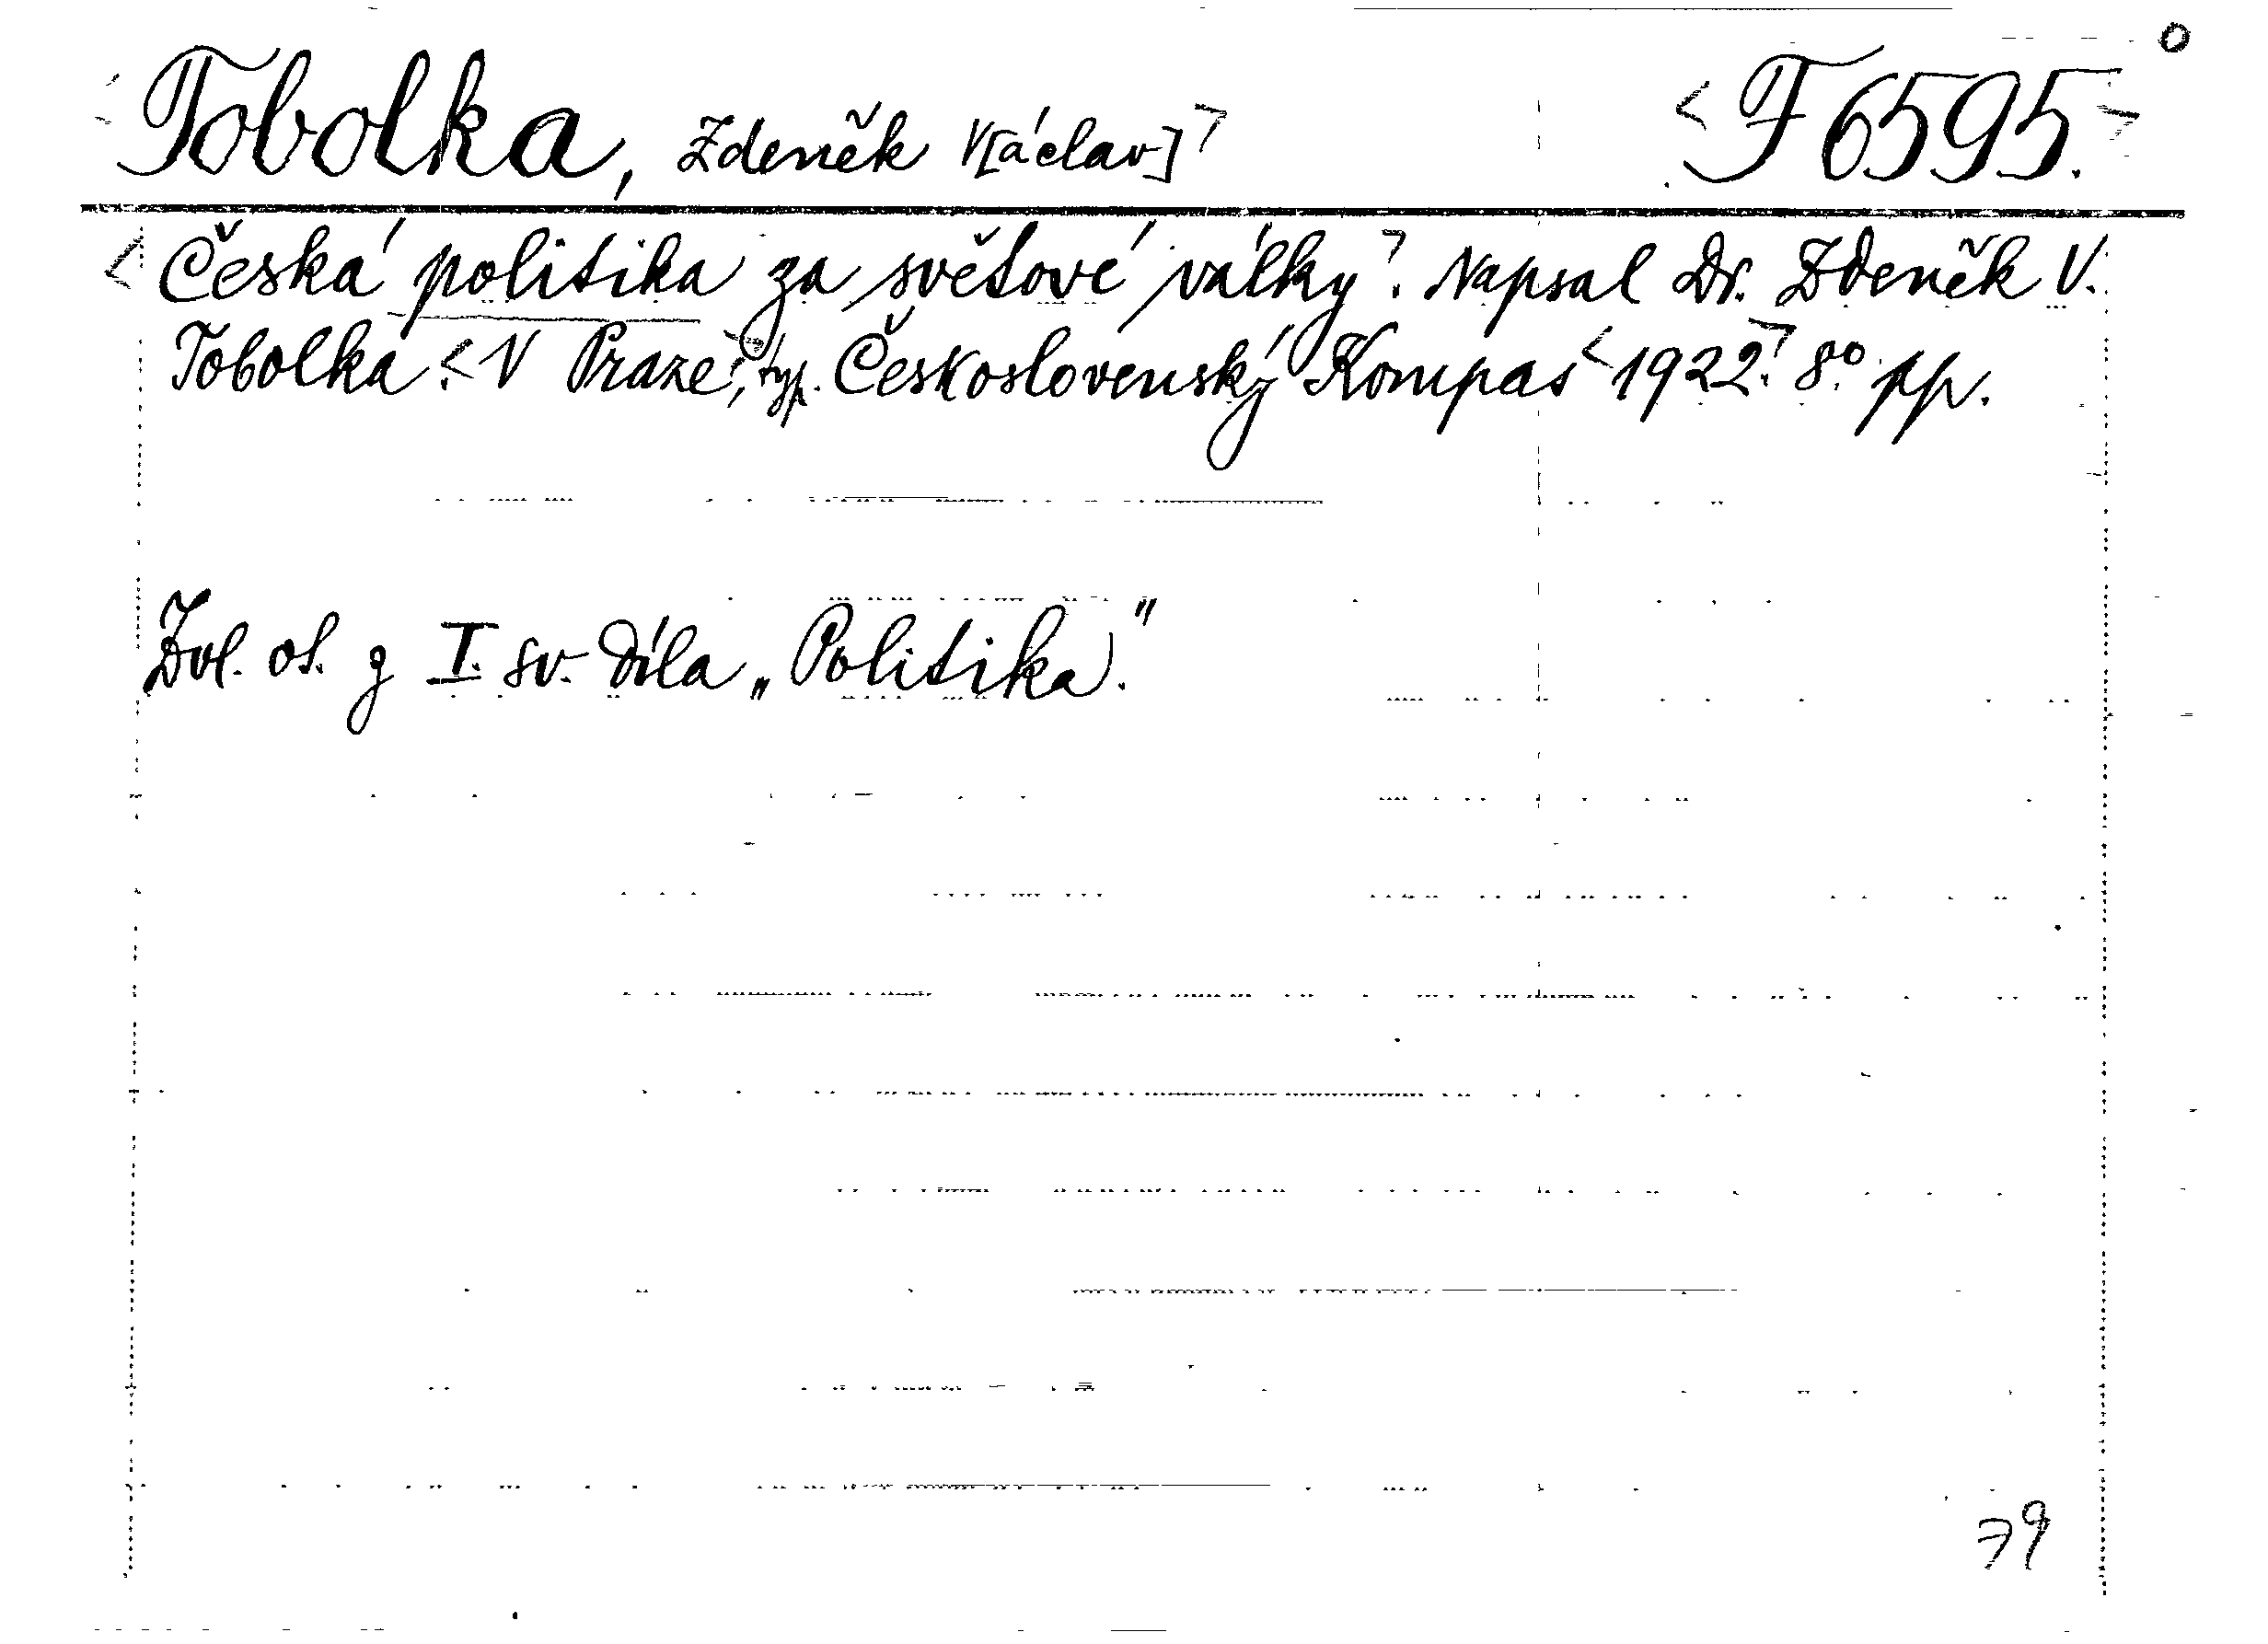 Tobolka, Zdeněk V[áclav] F 6595.
Česká politika za světové války. Napsal Dr. Zdeněk V.
Tobolka. V Praze, typ. Československý Kompas 1922. 8° pp.
Zvl. ot. z I. sv. díla „Politika."
79